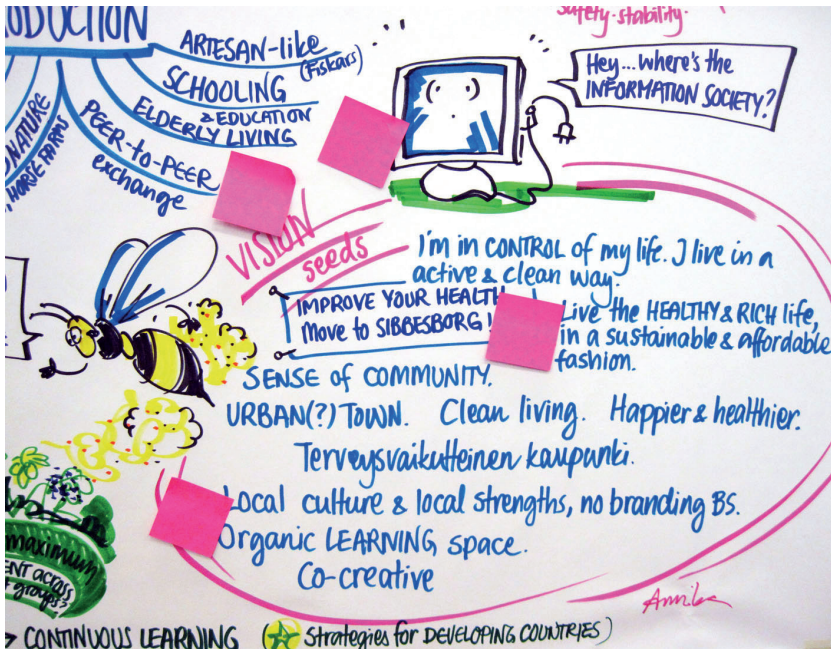 safety·stability·
ODUCTION
ARTESAN-like
(Fiskars)
SCHOOLING
& EDUCATION
ELDERLY LIVING
PEER-to-PEER
exchange
NATURE
HORSE FARMS
Hey...where's the
INFORMATION SOCIETY?
VISION
seeds
I'm in CONTROL of my life. I live in a
active & clean way.
IMPROVE YOUR HEALTH
Move to SIBBESBORG!
Live the HEALTHY & RICH life,
in a sustainable & affordable
fashion.
SENSE of COMMUNITY.
URBAN(?) TOWN. Clean living. Happier & healthier.
Terveysvaikutteinen kaupunki.
Local culture & local strengths, no branding BS.
Organic LEARNING space.
Co-creative
Annika
maximum
ENT across
groups?
CONTINUOUS LEARNING (Strategies for DEVELOPING COUNTRIES)